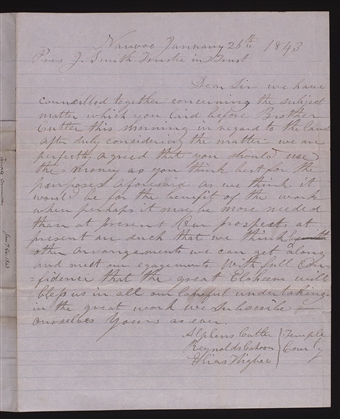 Nauvoo January 26th 1843
Pres J. Smith Trustee in Trust
Dear Sir we have
councilled together concerning the subject
matter which you laid before Brother
Cutler this morning in regard to the land
after duly considering the matter we are
perfectly agreed that you should use
the money as you think best for the
purposes aforesaid as we think it
would be for the benefit of the work
when perhaps it may be more needed
than at present Our prospects at
present are such that we think
other arrangements we can get along
and meet our engagements With full con
fidence that the great Eloheem will
bless us in all our lawful undertakings
in the great work we subscribe
ourselves yours as ever
Alpheus Cutler Temple
Reynolds Cahoon Com
Elias Higbee